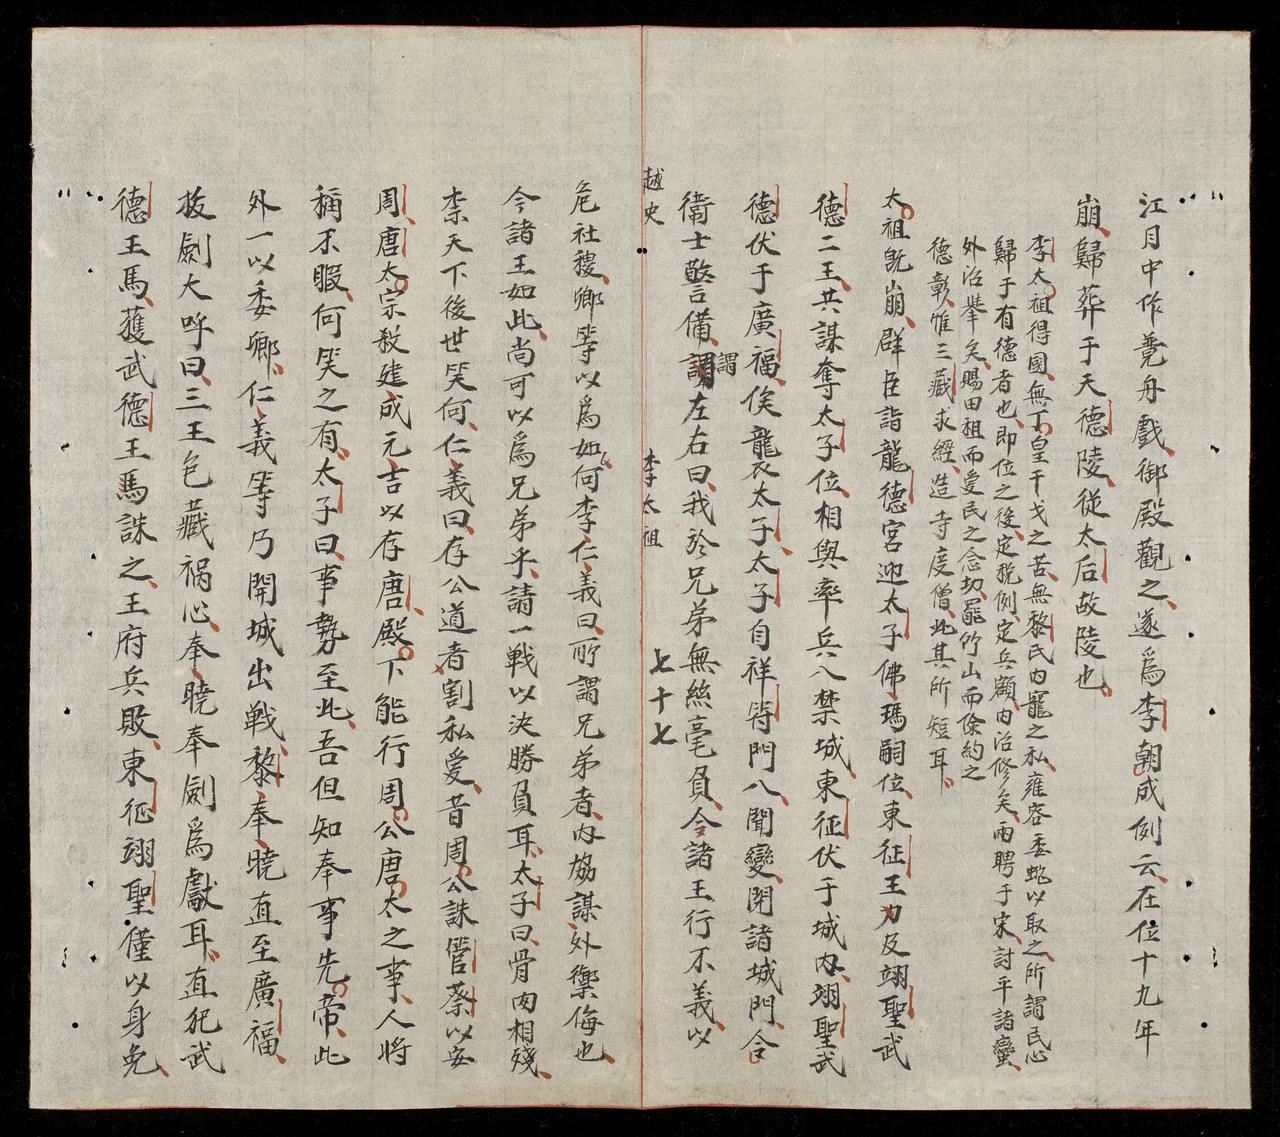 江月中作競舟戲御殿觀之遂爲李朝成例云在位十九年
崩歸葬于天德陵從太后故陵也
李太祖得國無丁皇干戈之苦無黎氏內寵之私雍容委蛇以取之所謂民心
歸于有德者也即位之後定稅例定兵額內治修矣而聘于宋討平諸蠻
外治舉矣賜田祖而受民之念切罷竹山而除約之
德彰惟三藏求經造寺度僧此其所短耳
太祖既崩群臣詣龍德宮迎太子佛瑪嗣位東征王力及翊聖武
德二王共謀奪太子位相與率兵入禁城東征伏于城內翊聖武
德伏于廣福俟龍衣太子太子自祥符門入聞變閉諸城門令
衛士警備謂左右曰我於兄弟無絲毫負今諸王行不義以
謂
越史 李太祖 七十七
危社稷卿等以爲如何李仁義曰所謂兄弟者內協謀外禦侮也
今諸王如此尚可以爲兄弟乎請一戰以決勝負耳太子曰骨肉相殘
柰天下後世笑何仁義曰存公道者割私愛昔周公誅管蔡以安
周唐太宗殺建成元吉以存唐殿下能行周公唐太之事人將
稱不暇何笑之有太子曰事勢至此吾但知奉事先帝此
外一以委卿仁義等乃開城出戰黎奉曉直至廣福
拔劍大呼曰三王包藏禍心奉曉奉劍爲獻耳直犯武
德王馬獲武德王馬誅之王府兵敗東征翊聖僅以身免